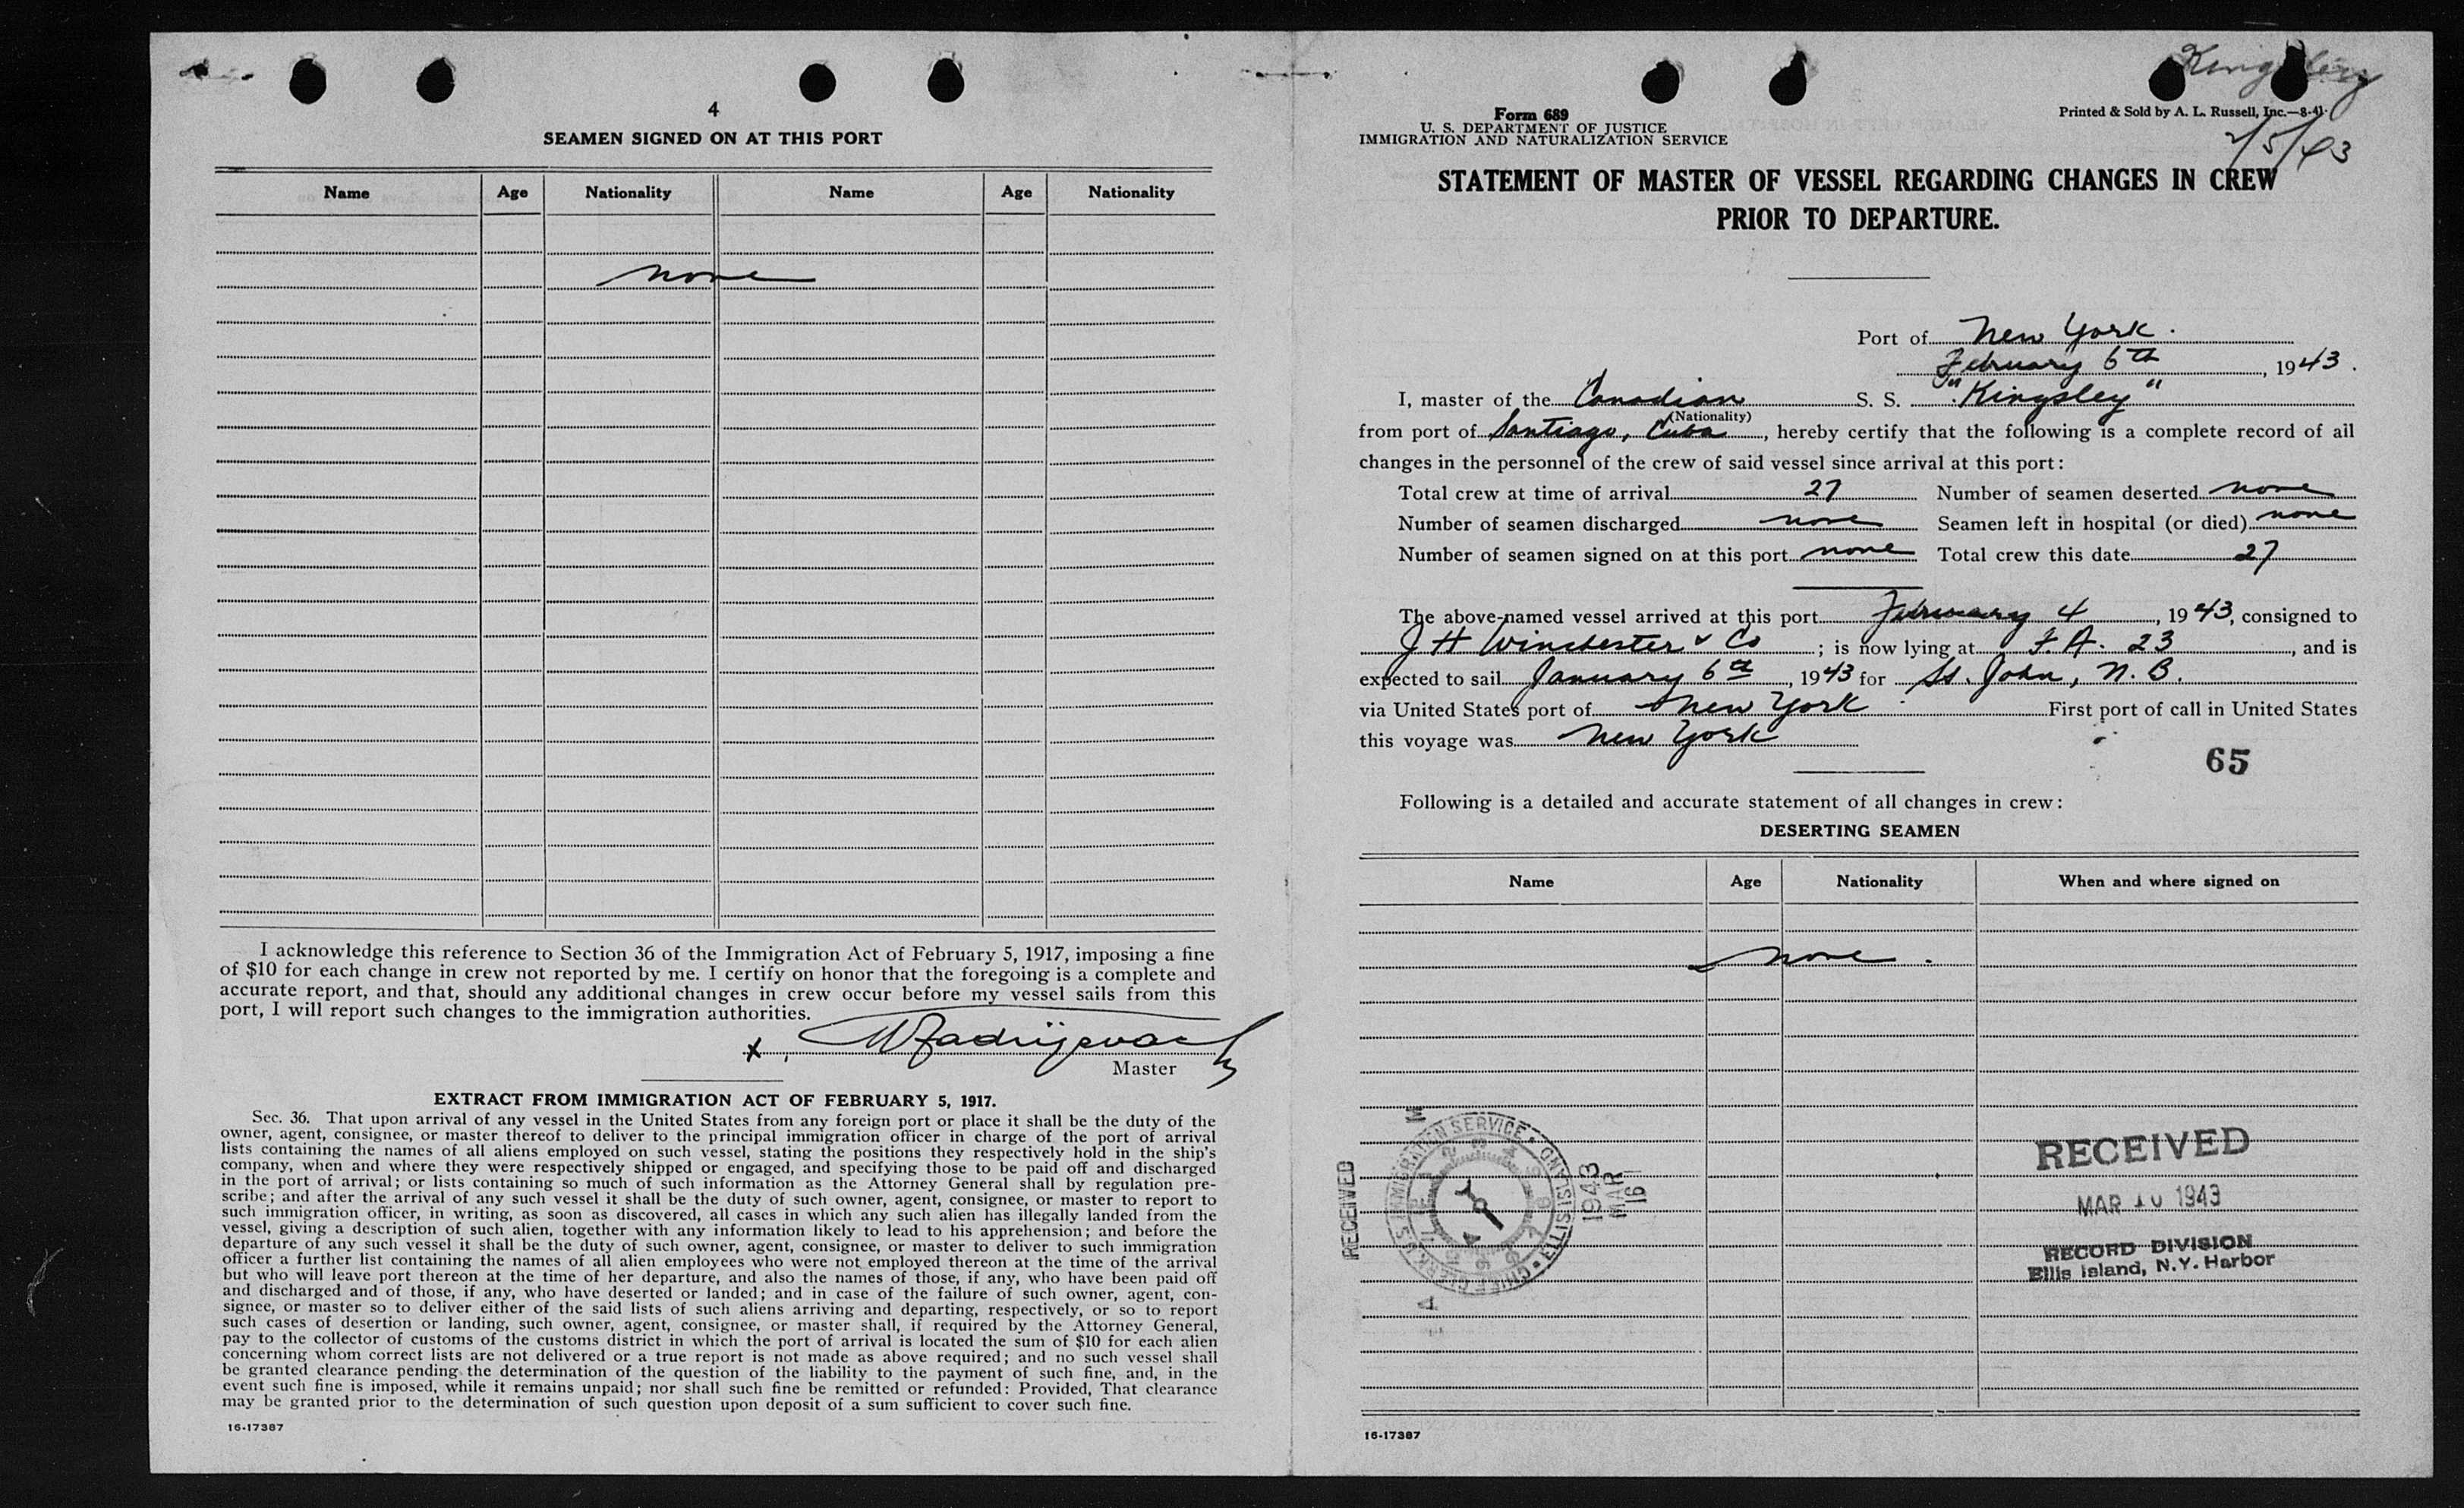 4
SEAMEN SIGNED ON AT THIS PORT
Name Age Nationality Name Age Nationality
none
I acknowledge this reference to Section 36 of the Immigration Act of February 5, 1917, imposing a fine
of $10 for each change in crew not reported by me. I certify on honor that the foregoing is a complete and
accurate report, and that, should any additional changes in crew occur before my vessel sails from this
port, I will report such changes to the immigration authorities.
x
Master
EXTRACT FROM IMMIGRATION ACT OF FEBRUARY 5, 1917.
Sec. 36. That upon arrival of any vessel in the United States from any foreign port or place it shall be the duty of the
owner, agent, consignee, or master thereof to deliver to the principal immigration officer in charge of the port of arrival
lists containing the names of all aliens employed on such vessel, stating the positions they respectively hold in the ship's
company, when and where they were respectively shipped or engaged, and specifying those to be paid off and discharged
in the port of arrival; or lists containing so much of such information as the Attorney General shall by regulation pre-
scribe; and after the arrival of any such vessel it shall be the duty of such owner, agent, consignee, or master to report to
such immigration officer, in writing, as soon as discovered, all cases in which any such alien has illegally landed from the
vessel, giving a description of such alien, together with any information likely to lead to his apprehension; and before the
departure of any such vessel it shall be the duty of such owner, agent, consignee, or master to deliver to such immigration
officer a further list containing the names of all alien employees who were not employed thereon at the time of the arrival
but who will leave port thereon at the time of her departure, and also the names of those, if any, who have been paid off
and discharged and of those, if any, who have deserted or landed; and in case of the failure of such owner, agent, con-
signee, or master so to deliver either of the said lists of such aliens arriving and departing, respectively, or so to report
such cases of desertion or landing, such owner, agent, consignee, or master shall, if required by the Attorney General,
pay to the collector of customs of the customs district in which the port of arrival is located the sum of $10 for each alien
concerning whom correct lists are not delivered or a true report is not made as above required; and no such vessel shall
be granted clearance pending the determination of the question of the liability to the payment of such fine, and, in the
event such fine is imposed, while it remains unpaid; nor shall such fine be remitted or refunded: Provided, That clearance
may be granted prior to the determination of such question upon deposit of a sum sufficient to cover such fine.
16-17387
Kingsley
Form 689
Printed & Sold by A. L. Russell, Inc.—8-41
U. S. DEPARTMENT OF JUSTICE
IMMIGRATION AND NATURALIZATION SERVICE
2/5/43
STATEMENT OF MASTER OF VESSEL REGARDING CHANGES IN CREW
PRIOR TO DEPARTURE.
Port of New York.
February 6th, 1943.
I, master of the Canadian S. S. "Kingsley"
(Nationality)
from port of Santiago, Cuba, hereby certify that the following is a complete record of all
changes in the personnel of the crew of said vessel since arrival at this port:
Total crew at time of arrival 27 Number of seamen deserted none
Number of seamen discharged none Seamen left in hospital (or died) none
Number of seamen signed on at this port none Total crew this date 27
The above-named vessel arrived at this port February 4, 1943, consigned to
J H Winchester & Co; is now lying at F. A. 23, and is
expected to sail January 6th, 1943 for St. John, N. B.
via United States port of New York First port of call in United States
this voyage was New York
65
Following is a detailed and accurate statement of all changes in crew:
DESERTING SEAMEN
Name Age Nationality When and where signed on
none.
RECEIVED
U.S. IMMIGRATION SERVICE • ELLIS ISLAND • CHIEF CLERK
1943
MAR
16
RECEIVED
MAR 10 1943
RECORD DIVISION
Ellis Island, N.Y. Harbor
16-17387